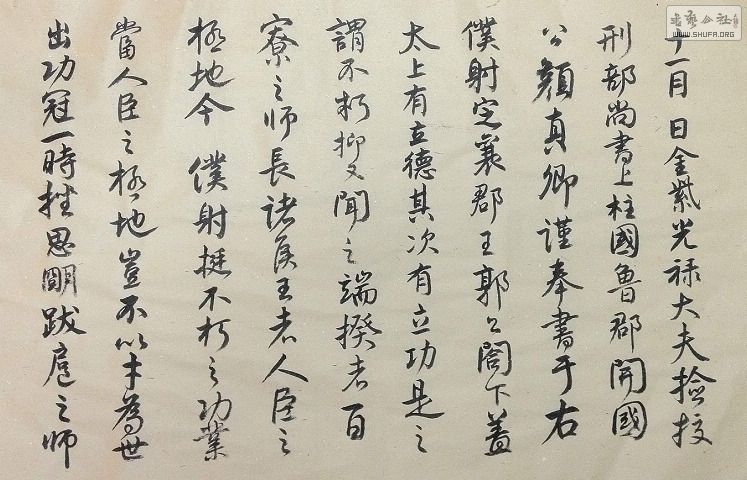 十一月 日金紫光禄大夫撿挍
刑部尚書上柱國魯郡開國
公顏真卿謹奉書于右
僕射定襄郡王郭公閤下蓋
太上有立德其次有立功是之
謂不朽抑又聞之端揆者百
寮之师長諸侯王者人臣之
極地今 僕射挺不朽之功業
當人臣之極地豈不以才為世
出功冠一時挫思明跋扈之师
书艺公社
WWW.SHUFA.ORG